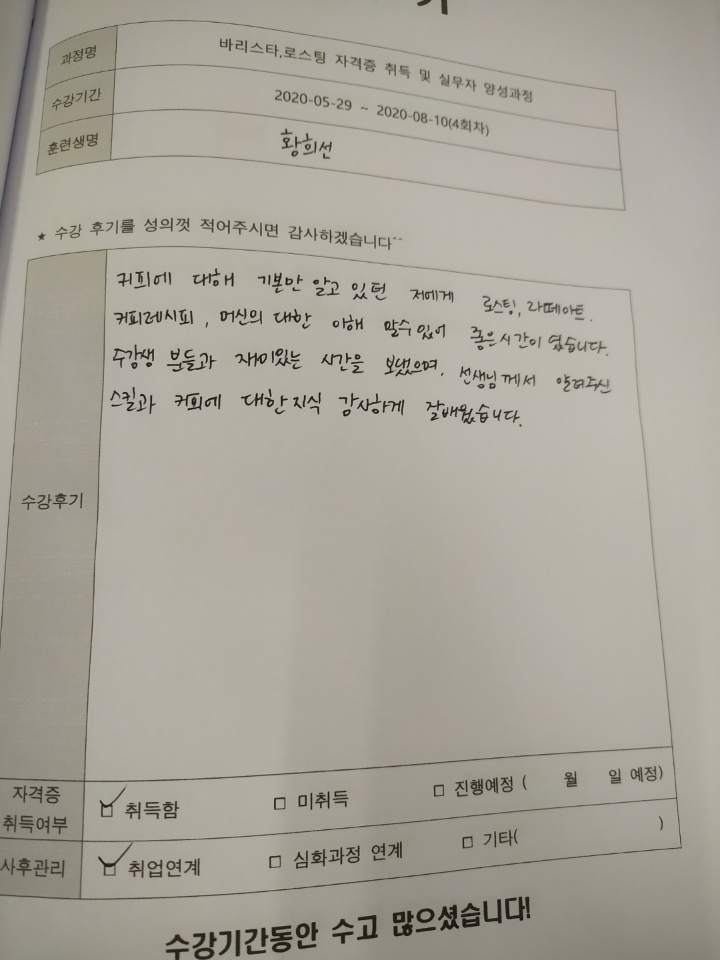 기
과정명 바리스타,로스팅 자격증 취득 및 실무자 양성과정
수강기간 2020-05-29 ~ 2020-08-10(4회차)
훈련생명 황희선
★ 수강 후기를 성의껏 적어주시면 감사하겠습니다^^
커피에 대해 기본만 알고 있던 저에게 로스팅, 라떼아트.
커피레시피, 머신의 대한 이해 알수 있어 좋은시간이 였습니다.
수강생 분들과 재미있는 시간을 보냈으며, 선생님께서 알려주신
스킬과 커피에 대한지식 감사하게 잘배웠습니다.
수강후기
자격증 취득여부 ☑ 취득함 □ 미취득 □ 진행예정 ( 월 일 예정)
사후관리 ☑ 취업연계 □ 심화과정 연계 □ 기타( )
수강기간동안 수고 많으셨습니다!